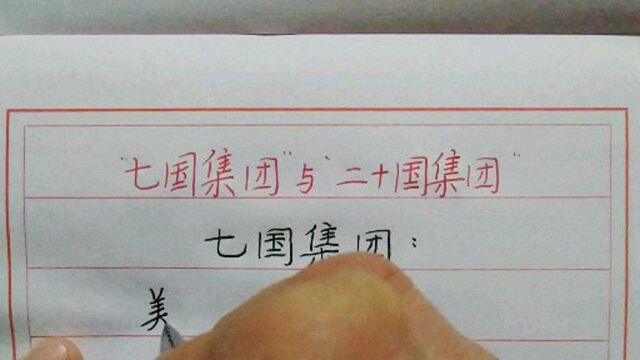 “七国集团”与“二十国集团”
七国集团：
美